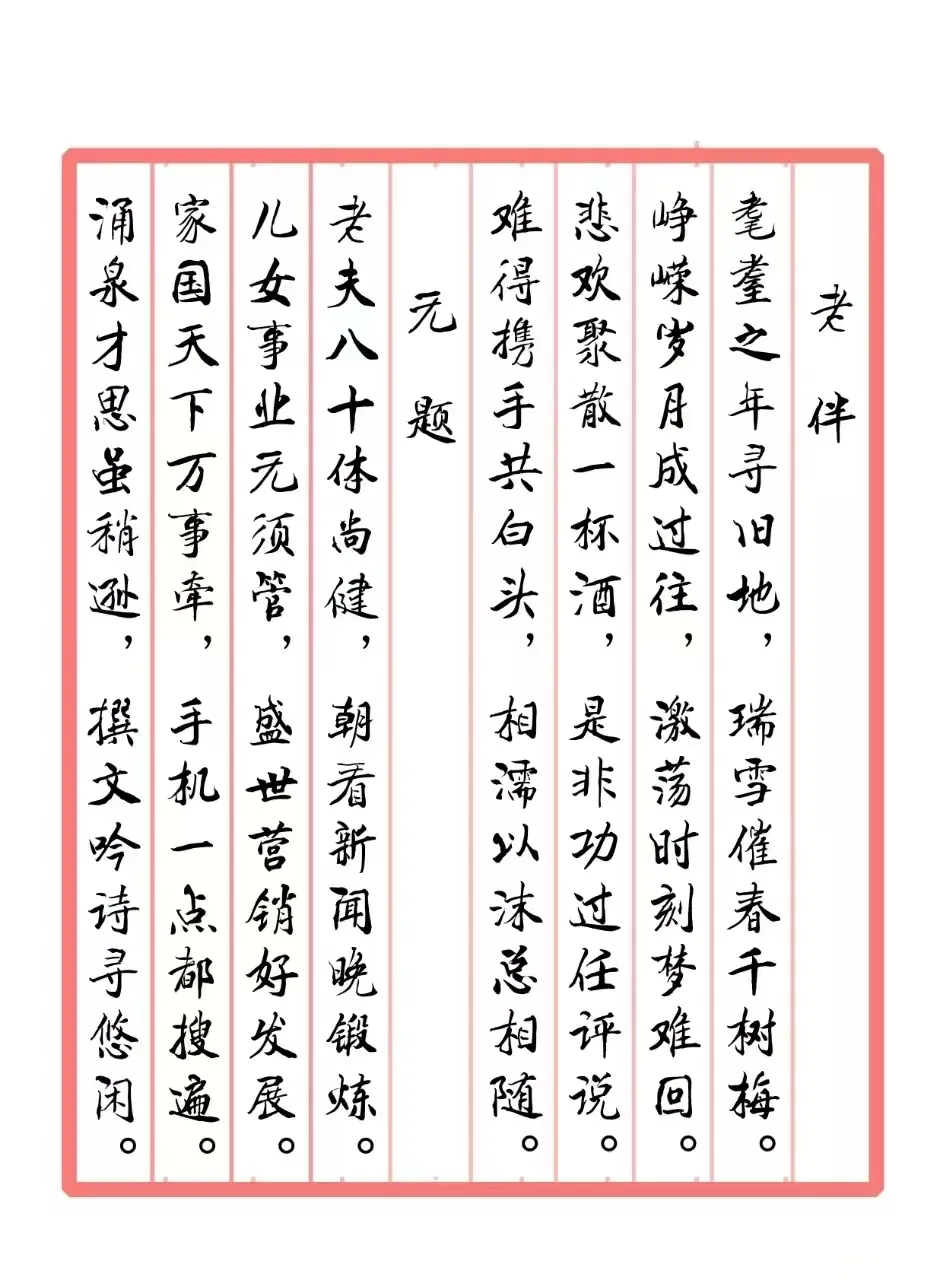 老伴
耄耋之年寻旧地，瑞雪催春千树梅。
峥嵘岁月成过往，激荡时刻梦难回。
悲欢聚散一杯酒，是非功过任评说。
难得携手共白头，相濡以沫总相随。
无题
老夫八十体尚健，朝看新闻晚锻炼。
儿女事业无须管，盛世营销好发展。
家国天下万事牵，手机一点都搜遍。
涌泉才思虽稍逊，撰文吟诗寻悠闲。